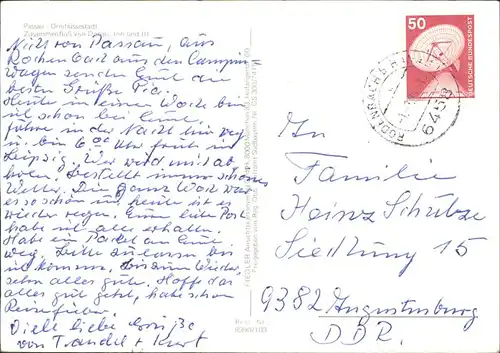 Passau - Dreiflüssestadt
Zusammenfluß von Donau, Inn und Ilz
Nicht von Passau, aus
Rodenbach aus den Camping
wagen senden Euch die
besten Grüße
Heute in einer Woche bin
ich schon bei Euch.
fahre in der Nacht hier weg
u. bin 6 00 Uhr früh in
Leipzig. Wer wird mich ab
holen. Bestellt immer schönes
Wetter. Die ganze Woche war
es so schön u. heute ist es
wieder regen. Eure liebe Post
habe ich alles erhalten.
Habe ein Paket an Euch
weg. Bitte zulassen bis
ich komme. Bis zum Wieder
sehn alles gute. Hoffe das
alles gut geht, habe schon
Reisefieber.
Viele liebe Grüße
von Trandel + Kurt
50
DEUTSCHE BUNDESPOST
RODENBACH B
6458
An
Familie
Heinz Schulze
Siedlung 15
9382 Augustusburg
DDR.